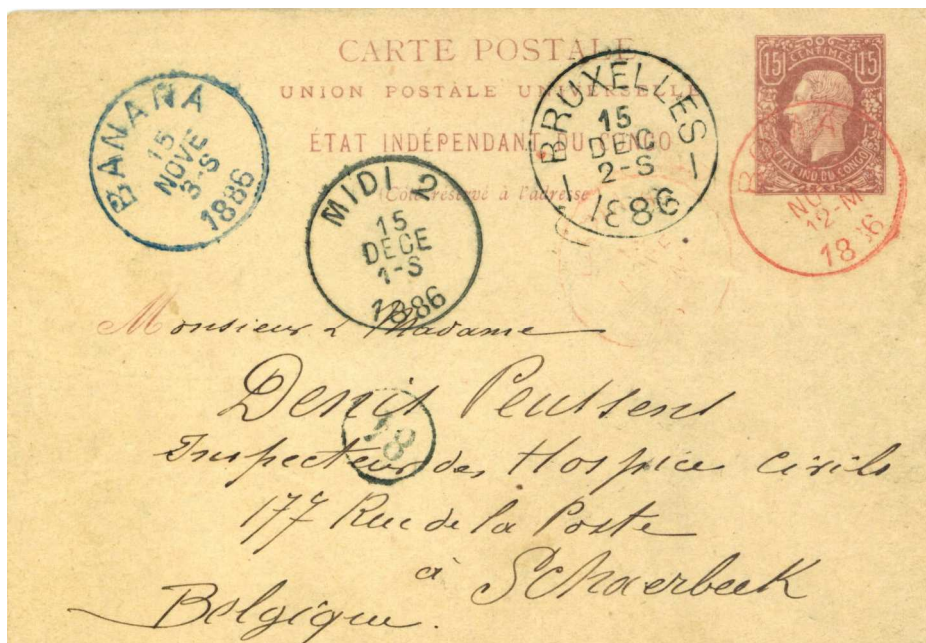 CARTE POSTALE
UNION POSTALE UNIVERSELLE
ÉTAT INDÉPENDANT DU CONGO
(Côté réservé à l'adresse
15 CENTIMES 15
ÉTAT IND. DU CONGO
BANANA
15
NOVE
3-S
1886
MIDI 2
15
DECE
1-S
1886
BRUXELLES
15
DEC
2-S
1886
12-M
Monsieur & Madame
Denis Peutsens
48
Inspecteur des Hospice Civils
177 Rue de la Poste
à Schaerbeek
Belgique.